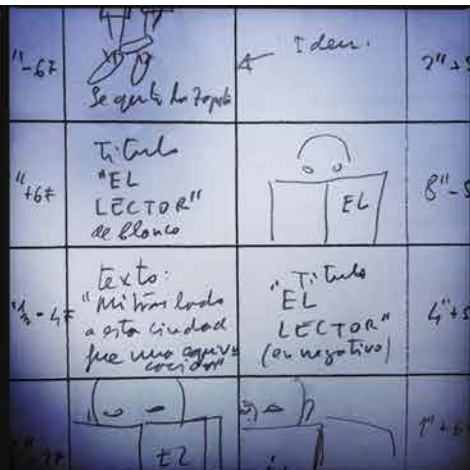 "-67
Se quita los zapatos
← Idem.
"+67
Titulo
"EL
LECTOR"
de blanco
EL
8"-5
texto:
"Mi traslado
a esta ciudad
fue una equivo
cación"
"Titulo
EL
LECTOR"
(en negativo)
4"+5
EL